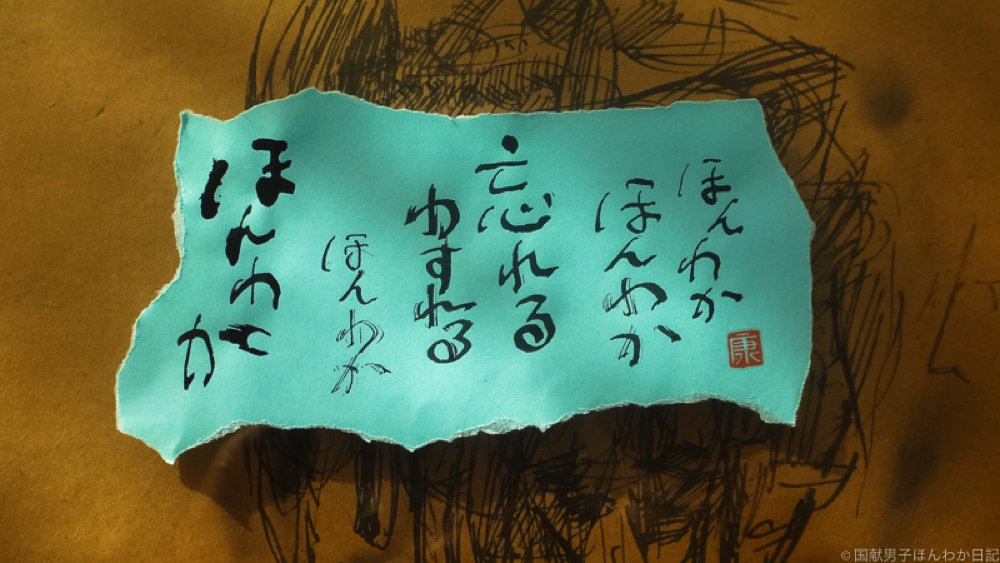 ほんわか
ほんわか
忘れる
わすれる
ほんわか
ほんわか
康
© 国献男子ほんわか日記